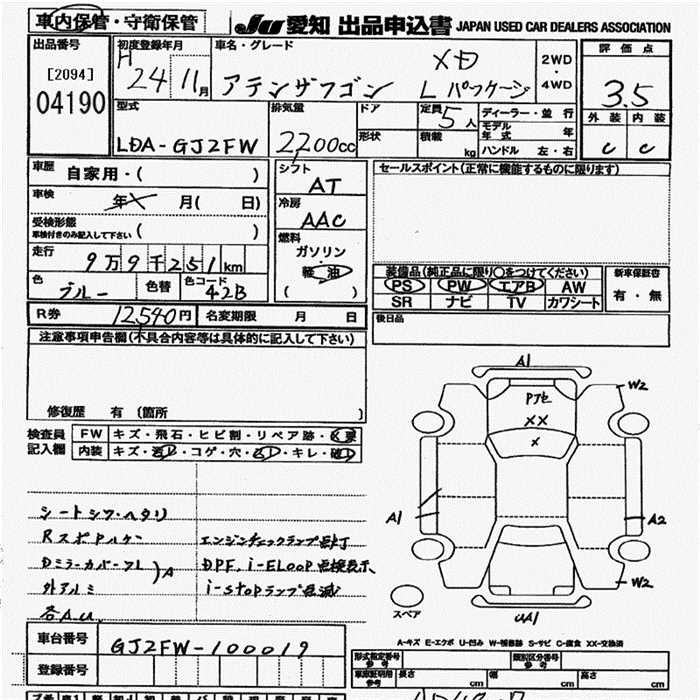 車内保管・守衛保管
JU 愛知 出品申込書 JAPAN USED CAR DEALERS ASSOCIATION
出品番号
[2094]
04190
初度登録年月
H
24 11月
車名・グレード
アテンザワゴン
XD
L パッケージ
2WD
・
4WD
評価点
3.5
外装 内装
C C
型式
LDA-GJ2FW
排気量
2,200cc
ドア
形状
定員
5人
積載
kg
ディーラー・並行
モデル年式 年
ハンドル 左・右
車歴
自家用・( )
車検
年 月( 日)
受検形態
車検付きのみ記入して下さい ( )
走行
9万9千251km
色
ブルー
色替
色コード
42B
シフト
AT
冷房
AAC
燃料
ガソリン
軽油
( )
セールスポイント(正常に機能するものに限ります)
装備品(純正品に限り○をつけてください)
PS PW エアB AW
SR ナビ TV カワシート
新車保証書
有・無
R券 12,540円
名変期限 月 日
後日品
注意事項申告欄(不具合内容等は具体的に記入して下さい)
修復歴 有 〔箇所 〕
検査員
記入欄
FW キズ・飛石・ヒビ割・リペア跡・
内装 キズ・ コゲ・穴・ ・キレ・
シートシワ・ヘタリ
Dミラーカバー
外アルミ
A
各A.U.
エンジンチェックランプ点灯
DPF、i-ELOOP点検表示、
i-stopランプ点滅
A1
W2
XX
X
A1
A2
W2
スペア
UA1
A-キズ E-エクボ U-凹み W-補修跡 S-サビ C-腐食 XX-交換済
車台番号
GJ2FW-100019
登録番号
形式指定番号
参考
類別区分番号
参考
車庫証明用
参考
長さ cm
幅 cm
高さ cm